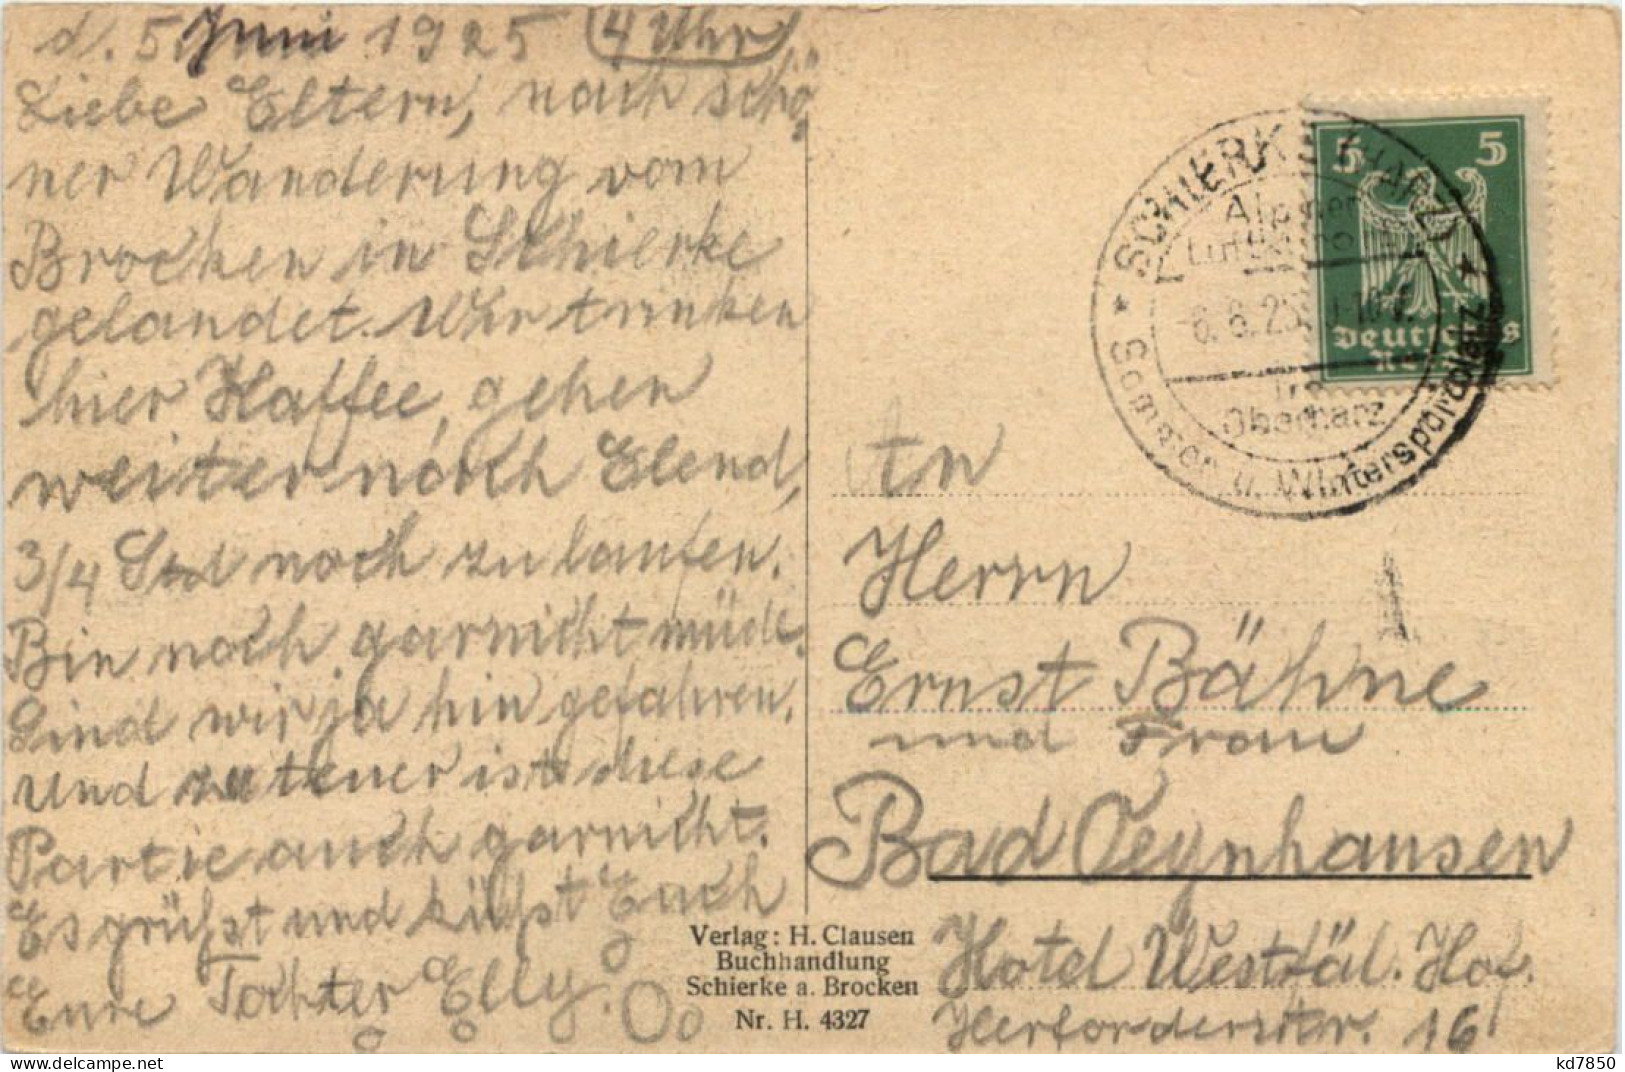 d. 5. Juni 1925 4 Uhr
Liebe Eltern, nach schö
ner Wanderung vom
Brocken in Schierke
gelandet. Uhr trinken
hier Kaffee, gehen
weiter nach Elend,
3/4 Std noch zu laufen.
Bin noch garnicht müde.
Sind wir ja hin gefahren.
Und zu teuer ist diese
Partie auch garnicht.
Es grüßt und küßt Euch
Eure Tochter Elly.
Verlag: H. Clausen
Buchhandlung
Schierke a. Brocken
Nr. H. 4327
SCHIERKE (HARZ)
Alpiner
Luftkurort
6.6.25
im
Oberharz
Sommer u. Wintersportplatz
5 5
Deutsches
Reich
An
Herrn
Ernst Bähne
und Frau
Bad Oeynhausen
Hotel Westfäl. Hof.
Herforderstr. 16
kd7850